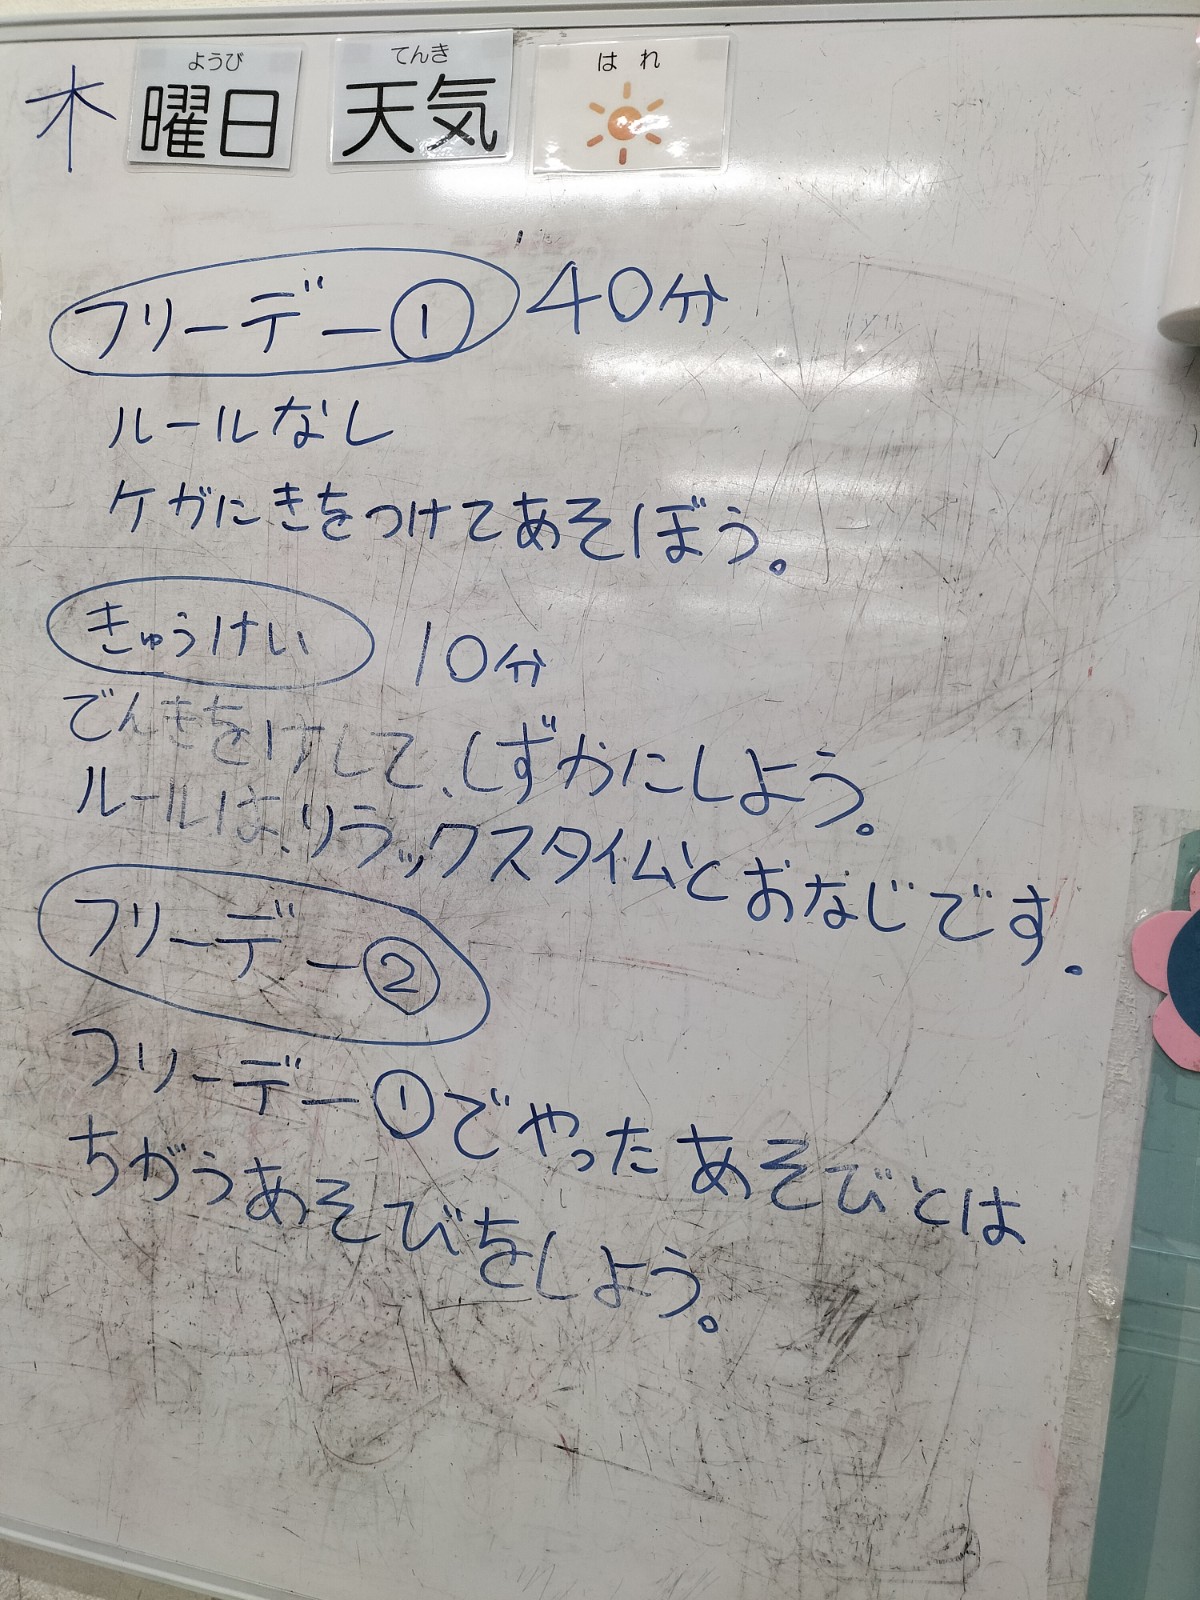 ようび てんき はれ
木 曜日 天気
フリーデー① 40分
ルールなし
ケガにきをつけてあそぼう。
きゅうけい 10分
でんきをけして、しずかにしよう。
ルールは、リラックスタイムとおなじです。
フリーデー②
フリーデー①でやったあそびとは
ちがうあそびをしよう。